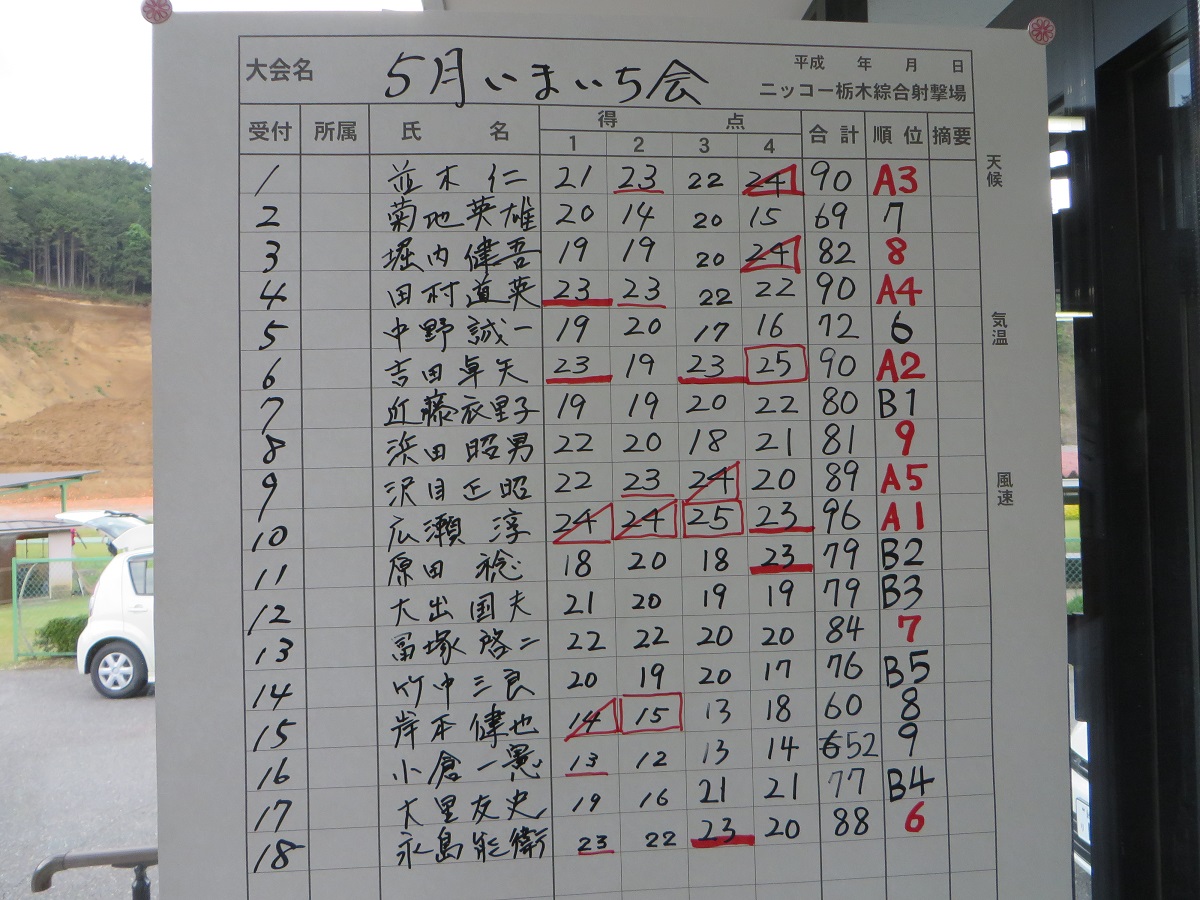 大会名 5月いまいち会 平成 年 月 日
ニッコー栃木綜合射撃場
受付 所属 氏 名 得 点 合計 順位 摘要
1 2 3 4
天候
1 並木 仁 21 23 22 24 90 A3
2 菊地英雄 20 14 20 15 69 7
3 堀内健吾 19 19 20 24 82 8
4 田村道英 23 23 22 22 90 A4
気温
5 中野誠一 19 20 17 16 72 6
6 吉田卓矢 23 19 23 25 90 A2
7 近藤衣里子 19 19 20 22 80 B1
8 浜田昭男 22 20 18 21 81 9
風速
9 沢目正昭 22 23 24 20 89 A5
10 広瀬 淳 24 24 25 23 96 A1
11 原田 稔 18 20 18 23 79 B2
12 大出国夫 21 20 19 19 79 B3
13 冨塚啓二 22 22 20 20 84 7
14 竹中三良 20 19 20 17 76 B5
15 岸本健也 14 15 13 18 60 8
16 小倉一憲 13 12 13 14 52 9
17 大里友史 19 16 21 21 77 B4
18 永島能衛 23 22 23 20 88 6